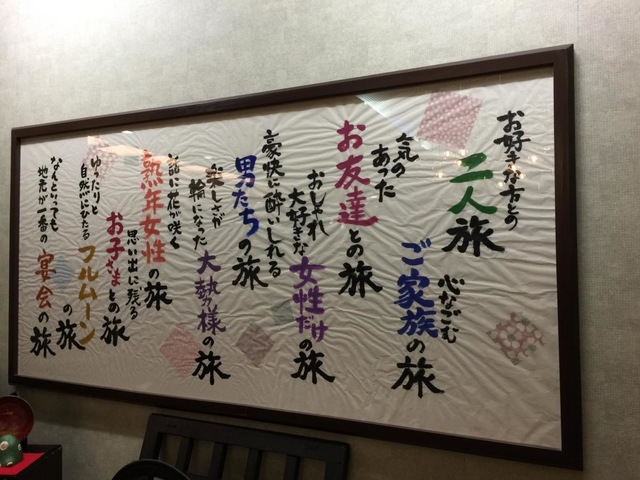 お好きな方との
二人旅
心なごむ
ご家族の旅
気の
あった
お友達との旅
おしゃれ
大好きな
女性だけ
の旅
豪快に酔いしれる
男たちの旅
楽しさが
輪になった
大勢様の旅
話に花が咲く
熟年女性の旅
思い出に残る
お子さまとの旅
ゆったりと
自然にひたる
フルムーン
の旅
なんといっても
地元が一番の
宴会の旅